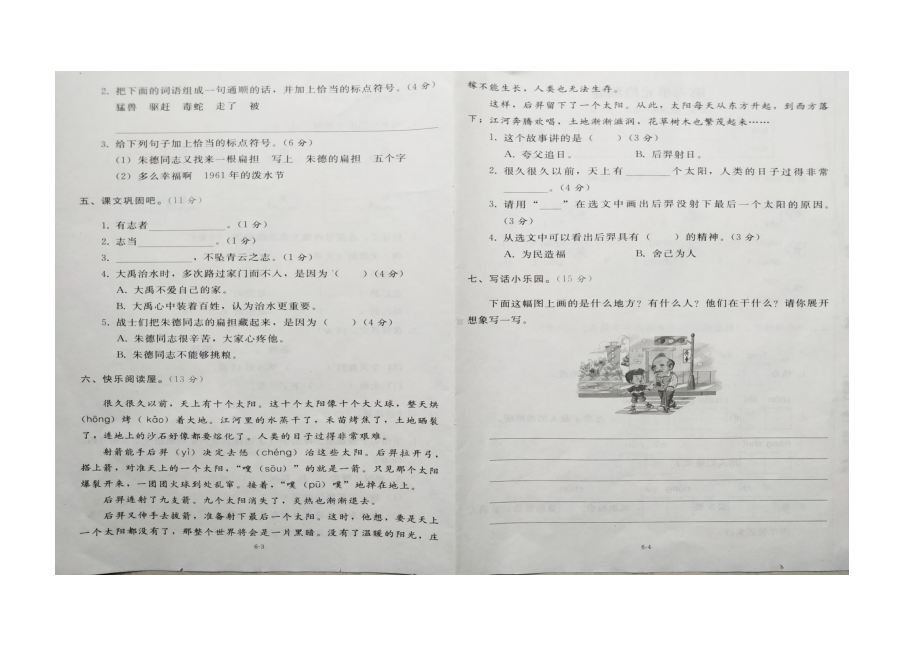 2. 把下面的词语组成一句通顺的话，并加上恰当的标点符号。(4分)
猛兽 驱赶 毒蛇 走了 被
3. 给下列句子加上恰当的标点符号。(6分)
(1) 朱德同志又找来一根扁担 写上 朱德的扁担 五个字
(2) 多么幸福啊 1961年的泼水节
五、课文巩固吧。(11分)
1. 有志者____________。(1分)
2. 志当____________。(1分)
3. ____________，不坠青云之志。(1分)
4. 大禹治水时，多次路过家门而不入，是因为( )(4分)
A. 大禹不爱自己的家。
B. 大禹心中装着百姓，认为治水更重要。
5. 战士们把朱德同志的扁担藏起来，是因为( )(4分)
A. 朱德同志很辛苦，大家心疼他。
B. 朱德同志不能够挑粮。
六、快乐阅读屋。(13分)
很久很久以前，天上有十个太阳。这十个太阳像十个大火球，整天烘
(hōng)烤(kǎo)着大地。江河里的水蒸干了，禾苗烤焦了，土地晒裂
了，连地上的沙石好像都要熔化了。人类的日子过得非常艰难。
射箭能手后羿(yì)决定去惩(chéng)治这些太阳。后羿拉开弓，
搭上箭，对准天上的一个太阳，“嗖(sōu)”的就是一箭。只见那个太阳
爆裂开来，一团团火球到处乱窜。接着，“噗(pū)噗”地掉在地上。
后羿连射了九支箭。九个太阳消失了，炎热也渐渐退去。
后羿又伸手去拔箭，准备射下最后一个太阳。这时，他想，要是天上
一个太阳都没有了，那整个世界将会是一片黑暗。没有了温暖的阳光，庄
6-3
稼不能生长，人类也无法生存。
这样，后羿留下了一个太阳。从此，太阳每天从东方升起，到西方落
下；江河奔腾欢唱，土地渐渐滋润，花草树木也繁茂起来……
1. 这个故事讲的是( )(3分)
A. 夸父追日。 B. 后羿射日。
2. 很久很久以前，天上有________个太阳，人类的日子过得非常
________。(4分)
3. 请用“____”在选文中画出后羿没射下最后一个太阳的原因。
(3分)
4. 从选文中可以看出后羿具有( )的精神。(3分)
A. 为民造福 B. 舍己为人
七、写话小乐园。(15分)
下面这幅图上画的是什么地方？有什么人？他们在干什么？请你展开
想象写一写。
6-4